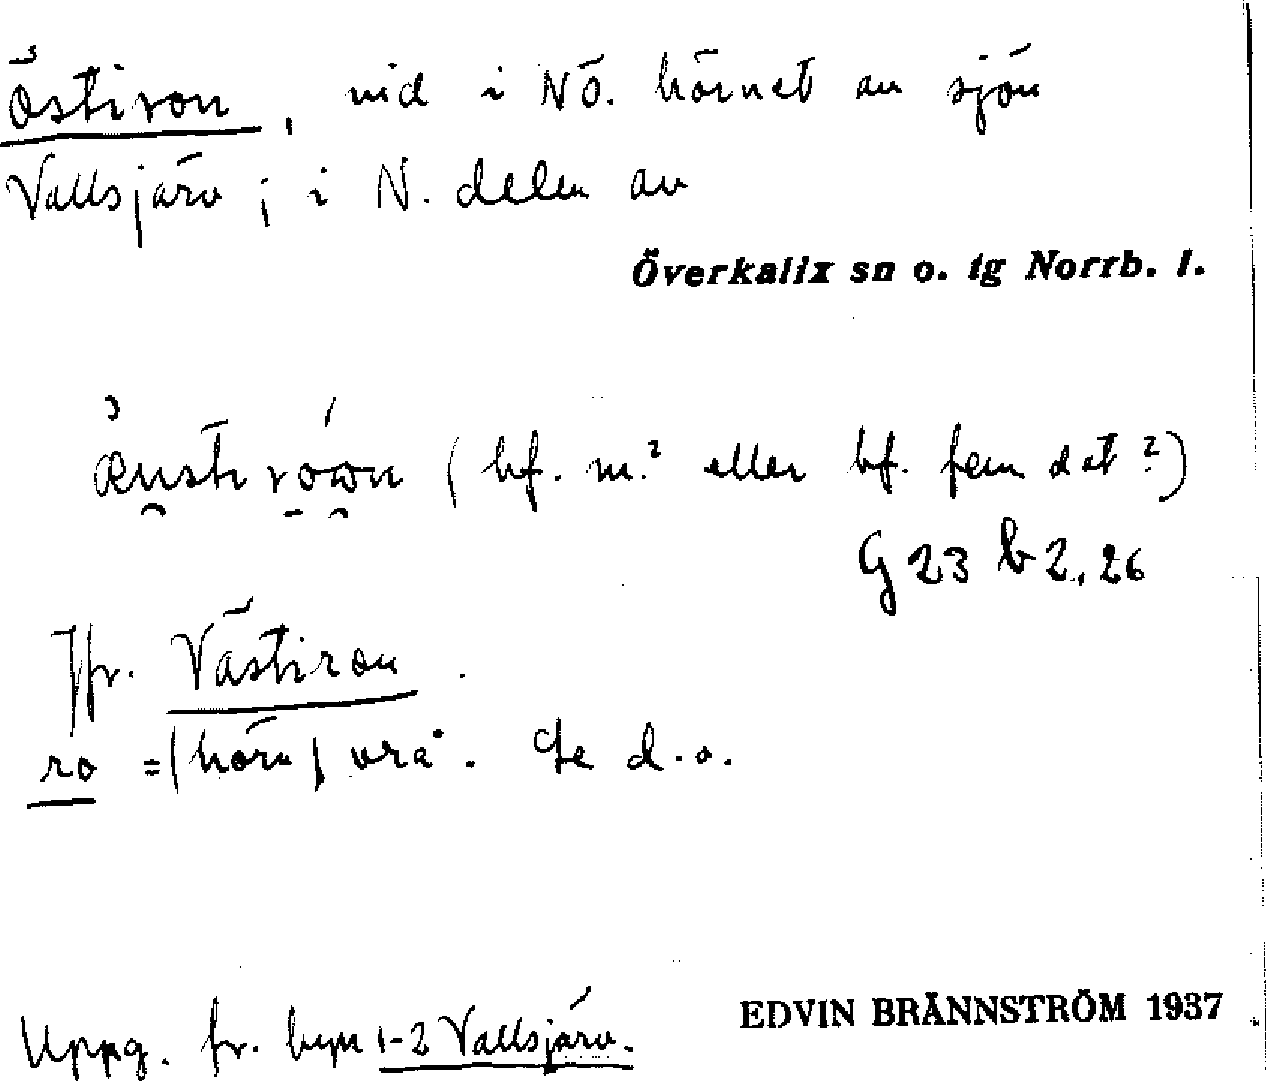 Östiron, vid i NÖ. hörnet av sjön
Vallsjärv; i N. delen av
Överkalix sn o. tg Norrb. l.
(bf. m.? eller bf. fem dat?)
G 23 b 2, 26
Jfr. Västiron.
ro = (hörn) vrå. Se d.o.
Uppg. fr. byn 1-2 Vallsjärv.
EDVIN BRÄNNSTRÖM 1937